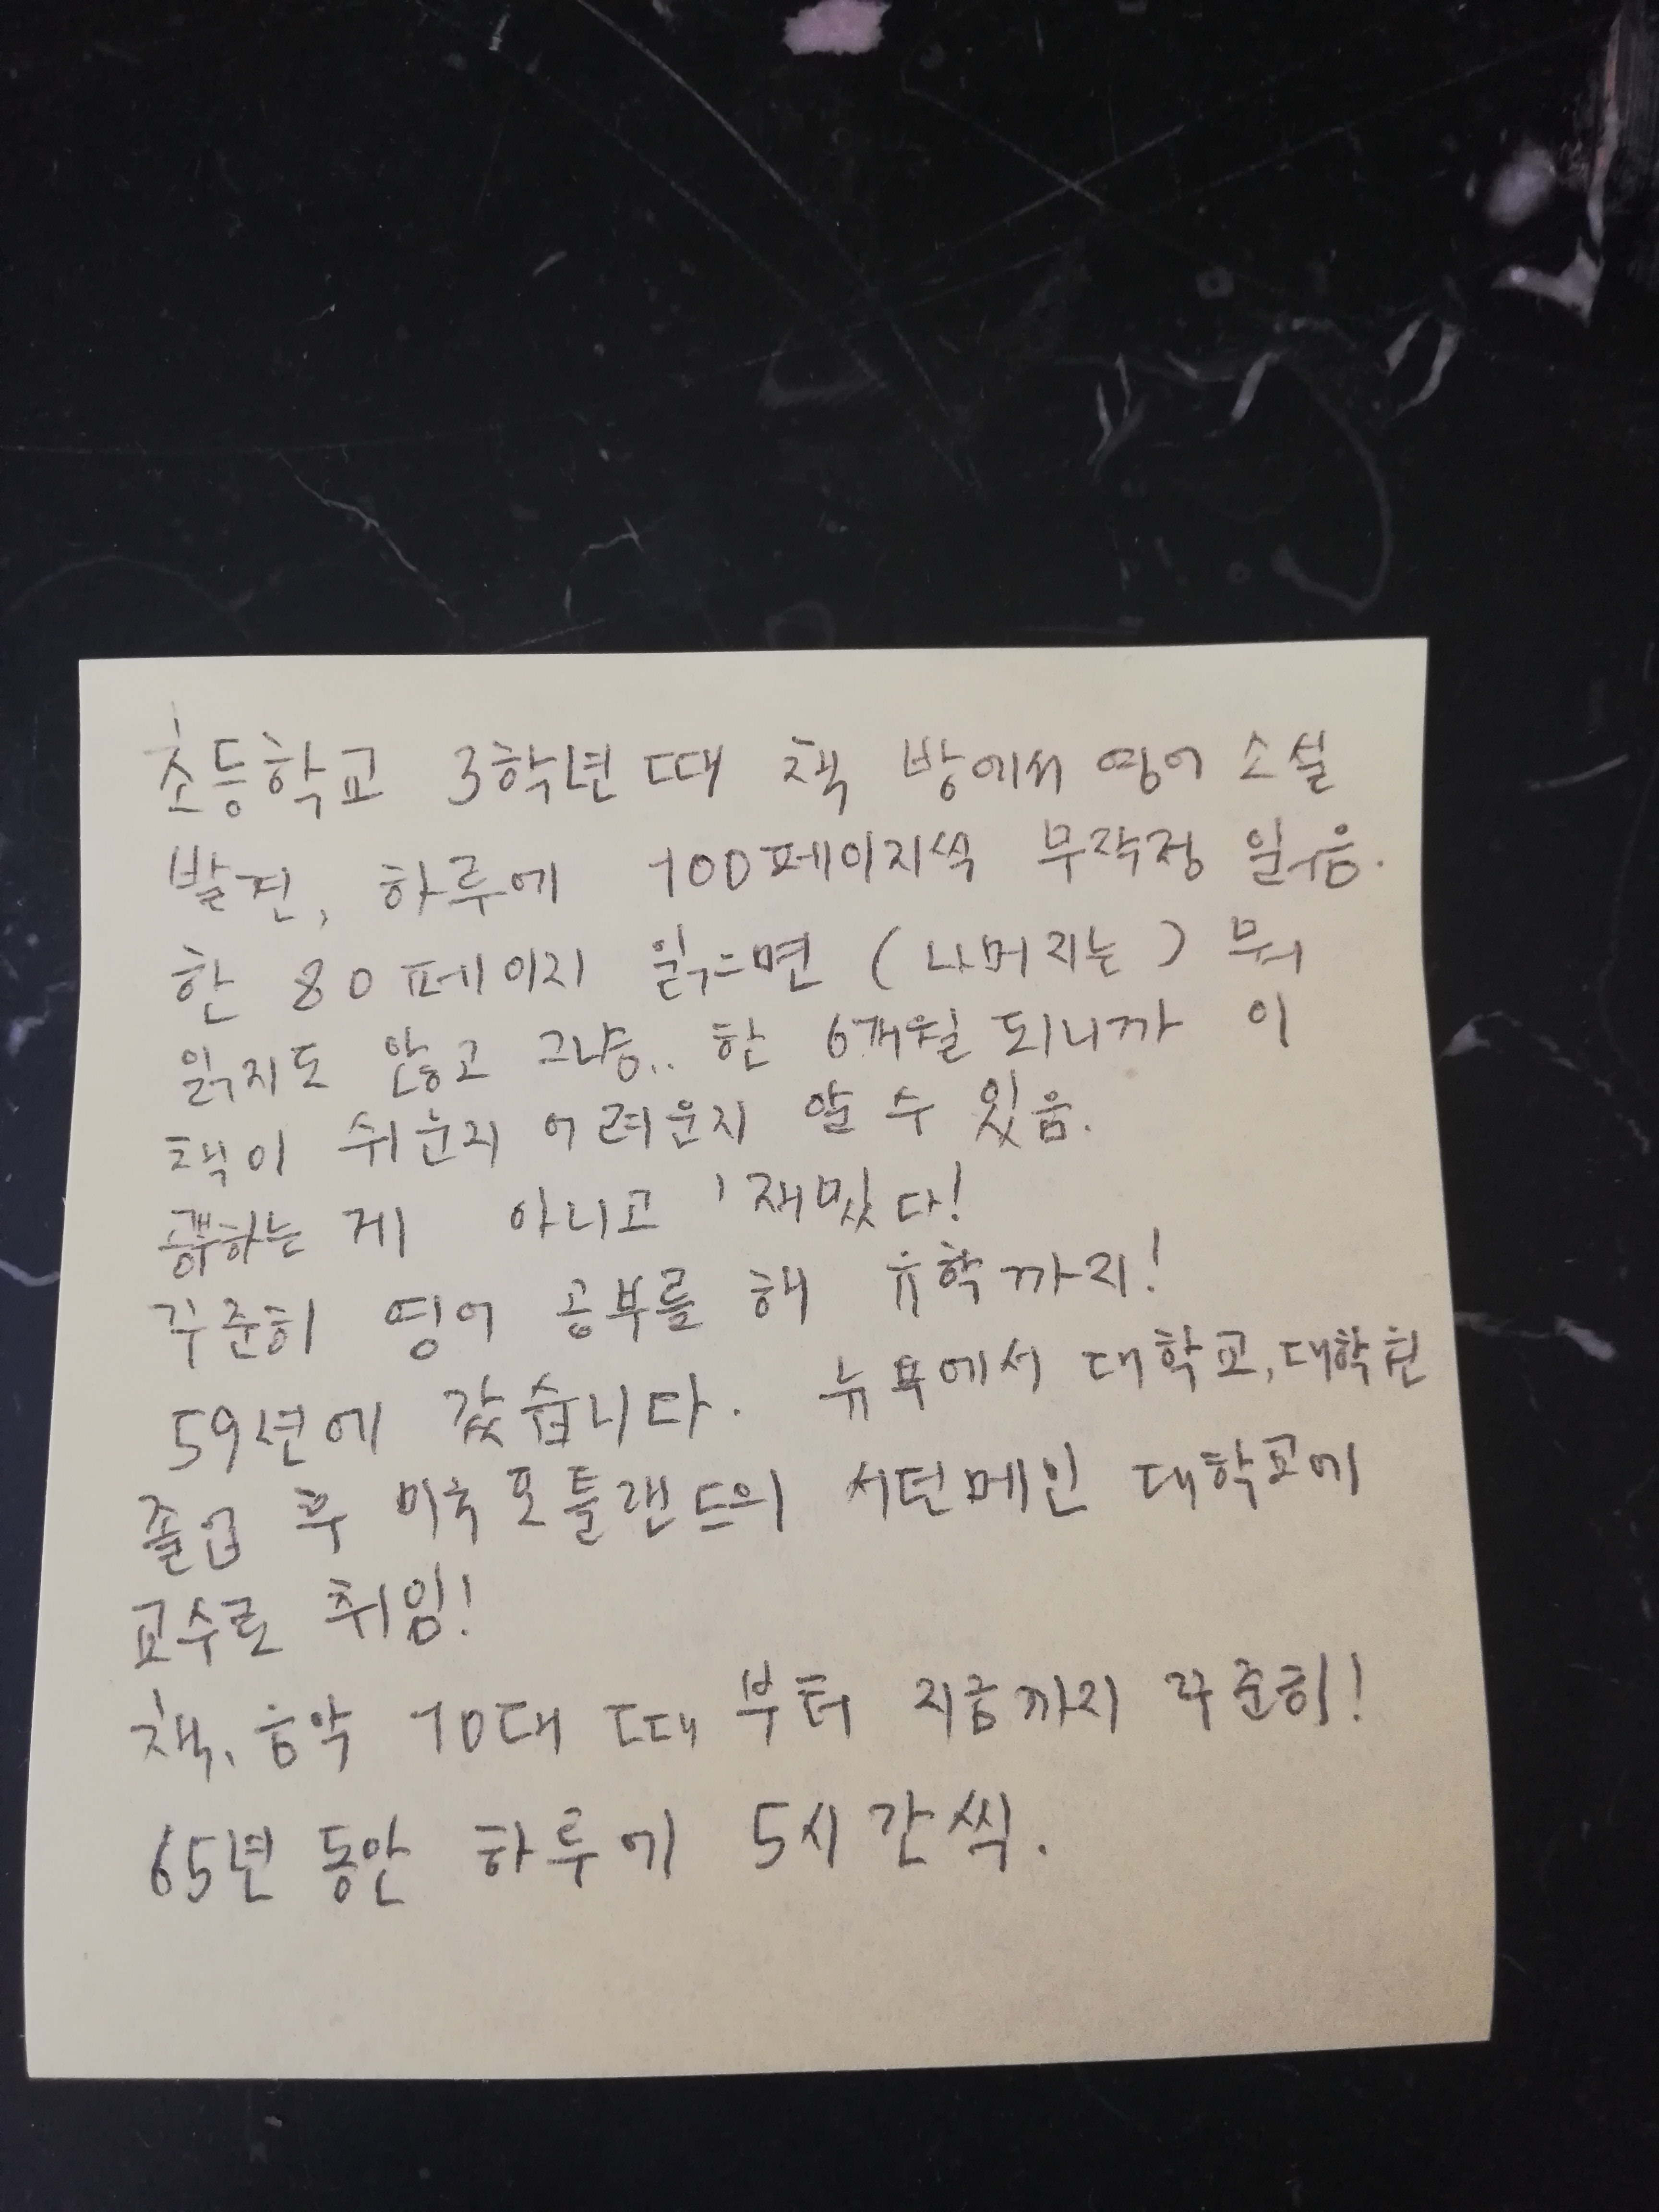 초등학교 3학년 때 책 방에서 영어 소설
발견, 하루에 100페이지씩 무작정 읽음.
한 80페이지 읽으면 (나머지는) 뭐
읽지도 않고 그냥.. 한 6개월 되니까 이
책이 쉬운지 어려운지 알 수 있음.
공부하는 게 아니고 '재밌다!
꾸준히 영어 공부를 해 유학까지!
59년에 갔습니다. 뉴욕에서 대학교, 대학원
졸업 후 미국 포틀랜드의 서던메인 대학교에
교수로 취임!
책, 음악 10대 때 부터 지금까지 꾸준히!
65년 동안 하루에 5시간씩.